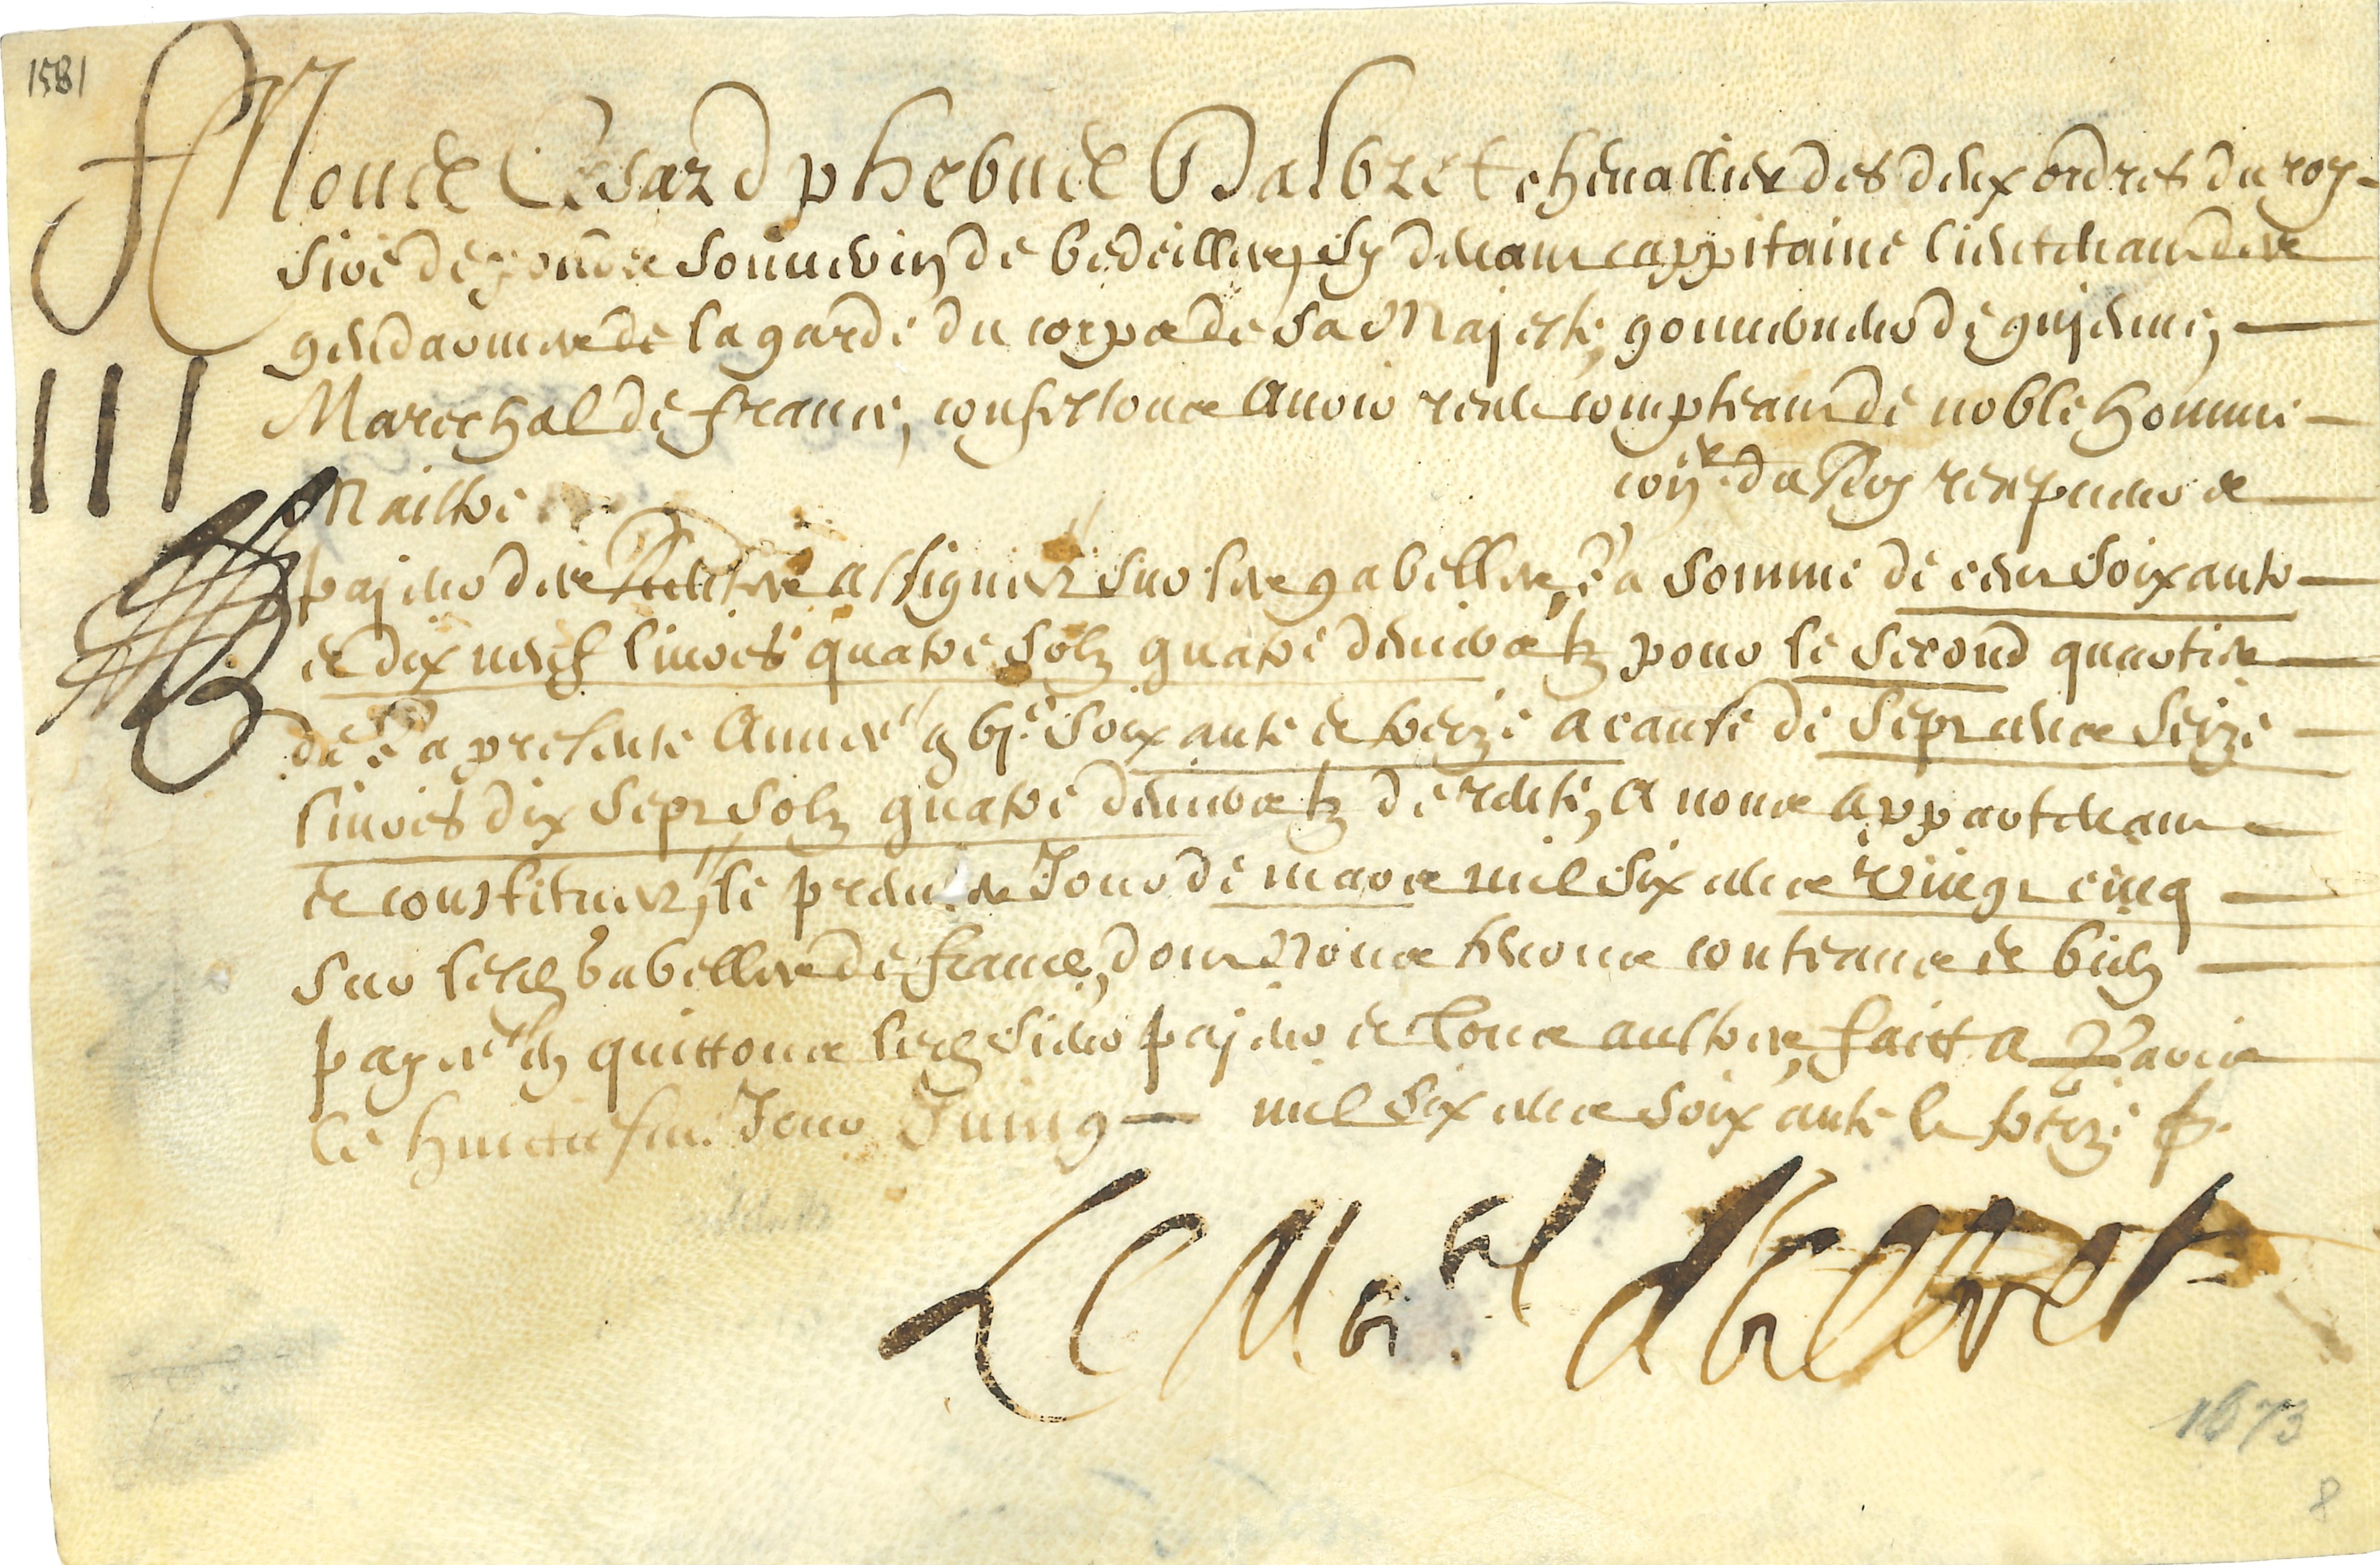 1581
Nous Cesard phebus Dalbret chevallier des deux ordres du roy
sire de ponds souverin de bedeilles, cy devant cappitaine lieutenant des
gendarmes de la garde du corps de sa Majesté, gouverneur de guienne,
Marechal de france, confessons avoir receu comptant de noble homme
Maistre
con.er du Roy receveur &
payeur des Rentes assignez sur les gabelles, La somme de cent soixante
& dix neuf livres quatre solz quatre deniers tz pour le second quartier
de La presente année g vj.c soixante & treize a cause de sept cens seize
livres dix sept solz quatre deniers tz de rente, A nous appartenant
& constituez, le jour de mars mil six cens vingt cinq
sur lesd Gabelles de france, dont Nous tenons contans & bien
payé en quittons led sieur payeur & tous aultres, faict a Paris
Le huictiesme Jour Juing mil six cens soixante & treize
Le Ma.al dAlbret
1673
8